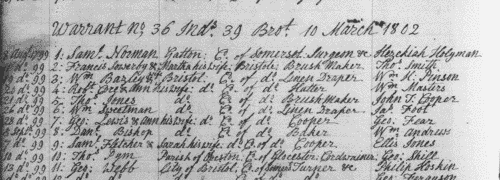 Warrant No 36 Indx. 39 Brot. 10 March 1802
99 1: Saml. Norman Yatton Co. of Somerset Surgeon & Hezekiah Holyman
do. 99 2: Francis & Martha his wife Bristol Brush Maker Thos. Smith
do. 99 3: Wm. Bazley do. Bristol Co. of do. Linen Draper Wm. K. Pinson
do. 99 4: Robt. & Ann his wife do. Co. of do. Hatter Wm. Masters
do. 99 5: Thos. Jones do. Co. of do. Brush Maker John T. Cooper
do. 99 6: Wm. Sweetman do. Co. of do. Linen Draper Jas. Foot
do. 99 7: Geo: Lewis & Ann his wife do. Co. of do. Cooper Geo: Fear
Sept. 99 8: Danl. Bishop do. Co. of do. Baker Wm. Andrews
do. 99 9: Saml. Fletcher & Sarah his wife do. Co. of do. Cooper Ellis Jones
do. 99 10: Thos. Pym Parish of Co. of Glocester Cordwainer Geo: Shill
do. 99 11: Geo: Webb City of Bristol Co. of Turner &c. Philip Hoskin
Ferguson